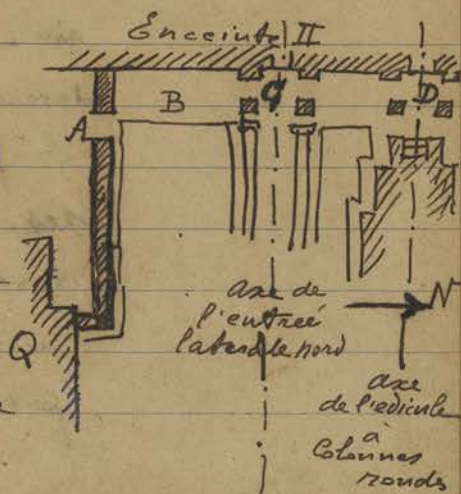 Enceinte II
A
B
C
D
Q
N
axe de
l'entrée
laterale nord
axe
de l'edicule
à
Colonnes
rondes